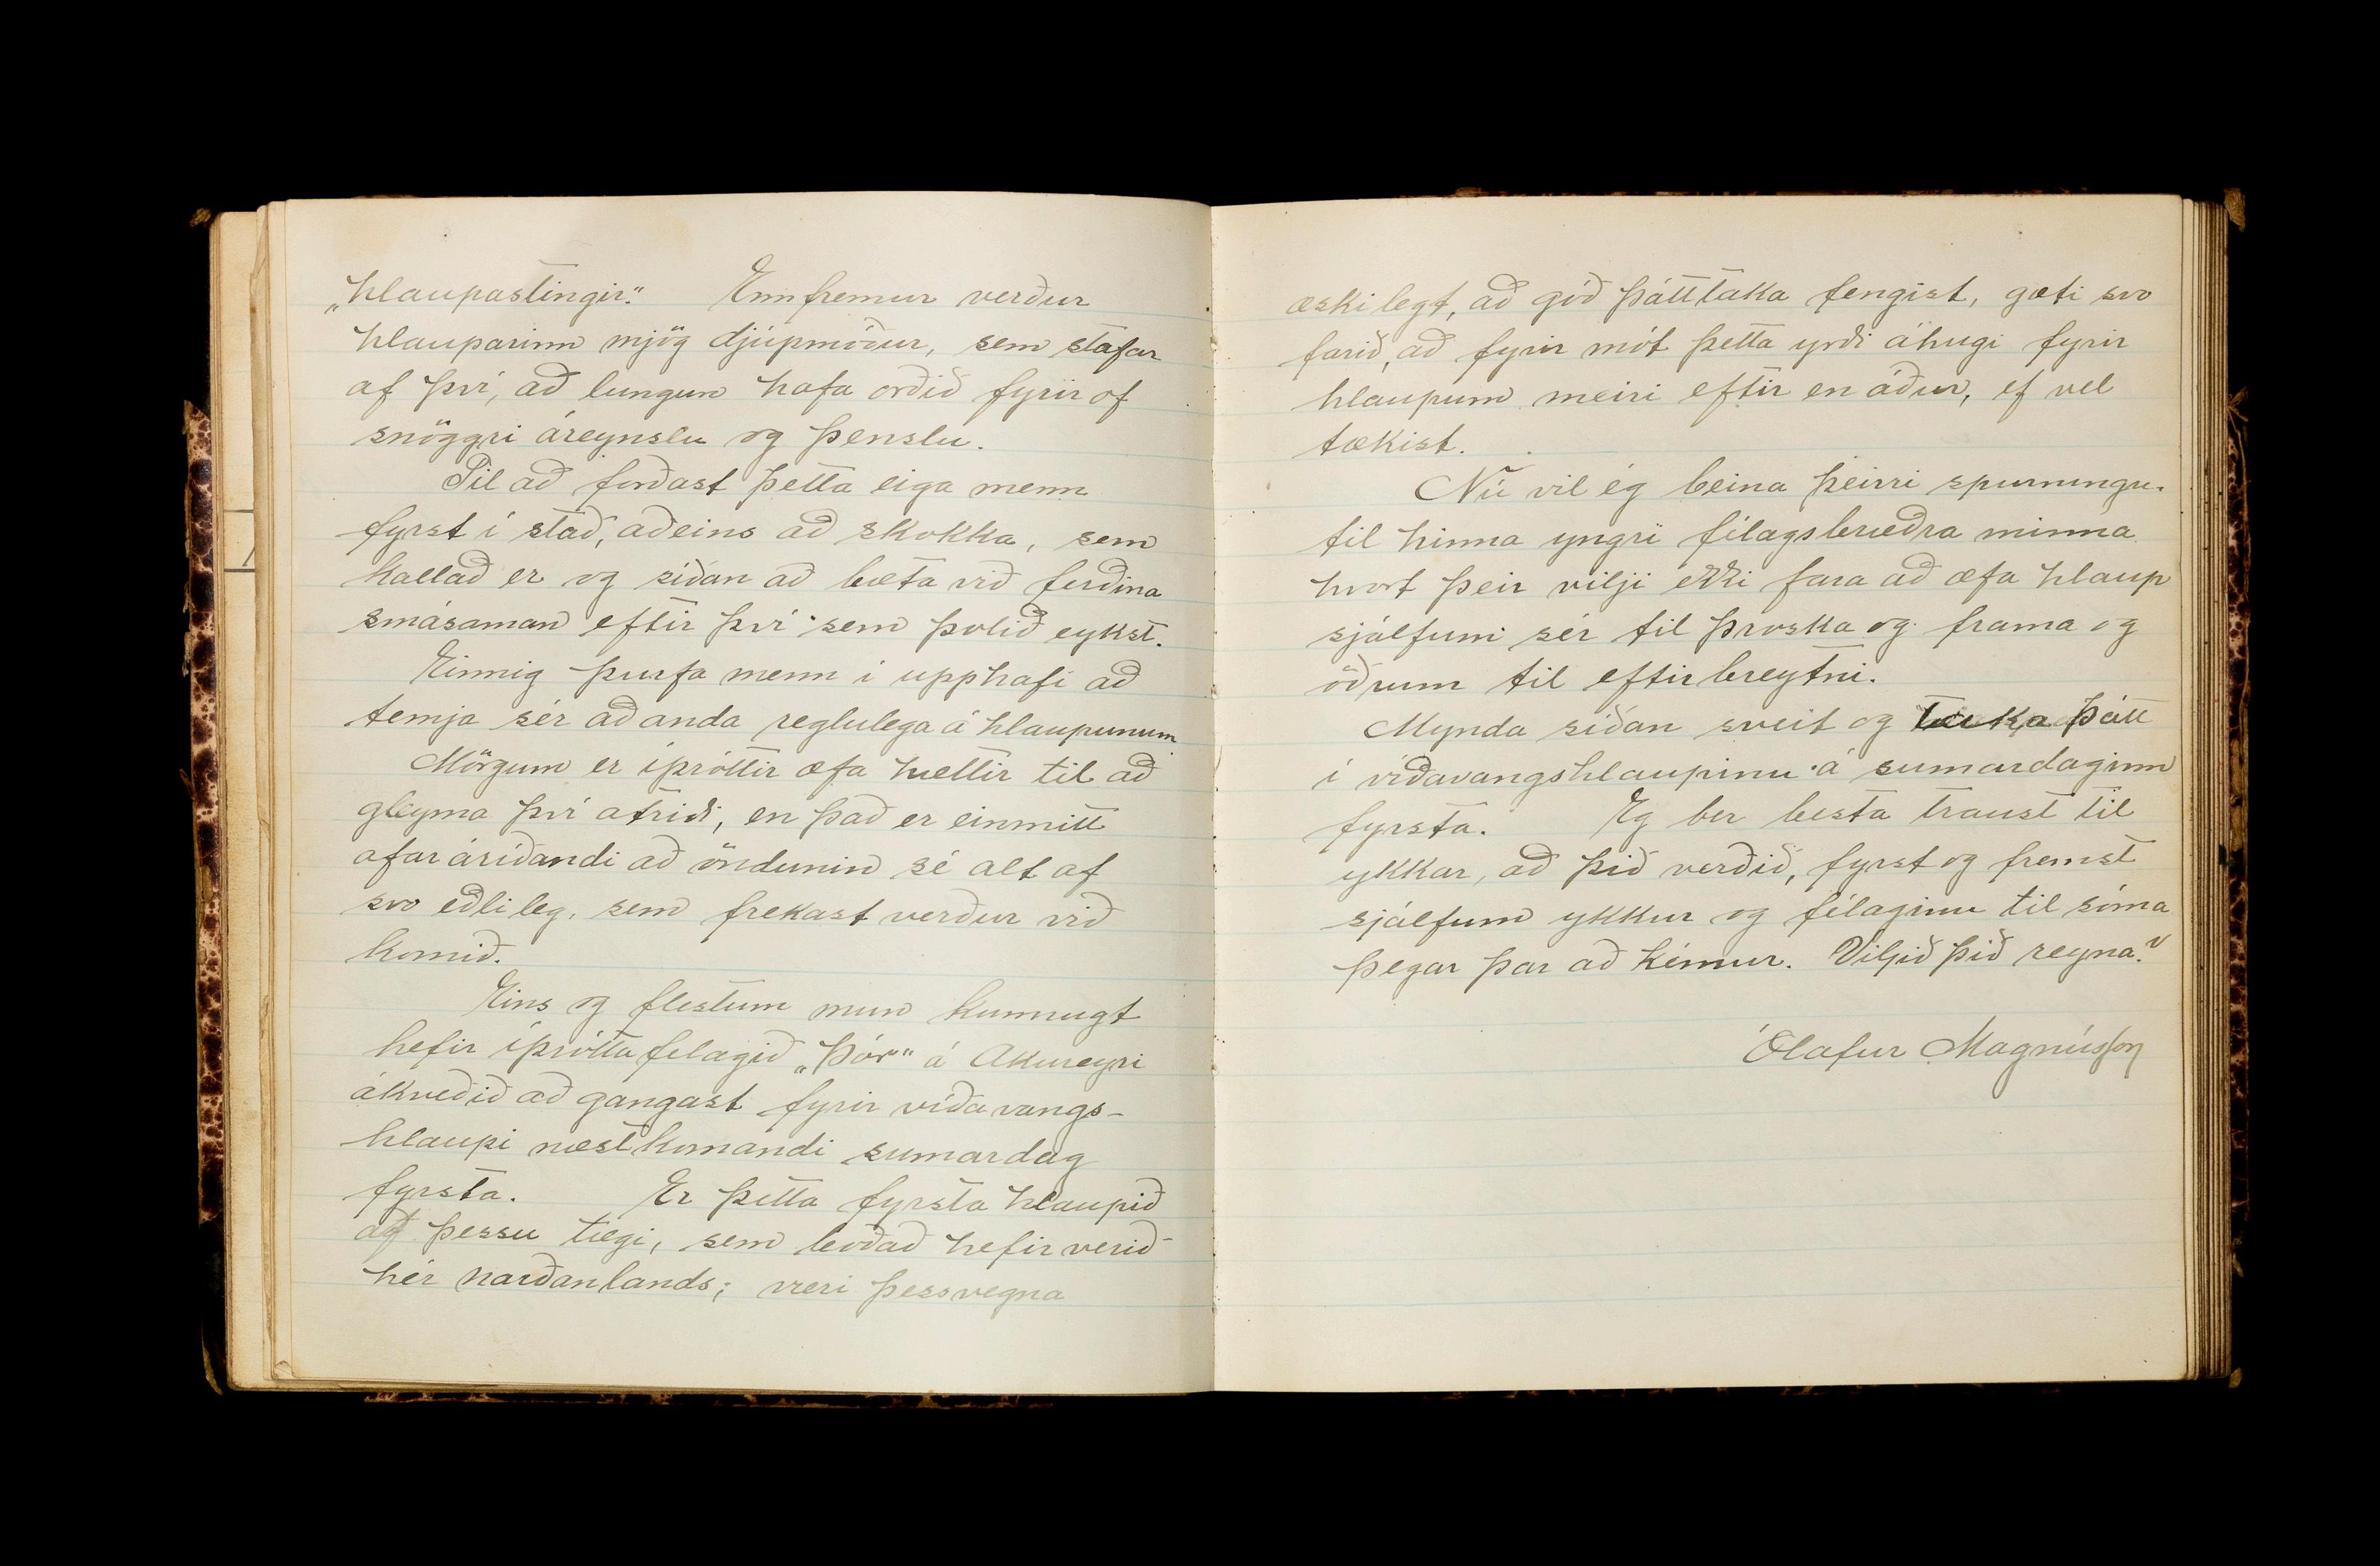 „hlaupastingir." Ennfremur verður
hlauparinn mjög djúpmóður, sem stafar
af því, að lungun hafa orðið fyrir of
snöggri áreynslu og þenslu.
Til að forðast þetta eiga menn
fyrst í stað, aðeins að skokka, sem
kallað er og síðan að bæta við ferðina
smásaman eftir því sem þolið eykst.
Einnig þurfa menn í upphafi að
temja sér að anda reglulega á hlaupunum.
Mörgum er íþróttir æfa hættir til að
gleyma því atriði, en það er einmitt
afar áríðandi að öndunin sé alt af
svo eðlileg, sem frekast verður við
komið.
Eins og flestum mun kunnugt
hefir íþróttafelagið „Þór" á Akureyri
ákveðið að gangast fyrir víðavangs-
hlaupi næstkomandi sumardag
fyrsta. Er þetta fyrsta hlaupið
af þessu tægi, sem boðað hefir verið
hér narðanlands; væri þessvegna
æskilegt, að góð þátttaka fengist, gæti svo
farið, að fyrir mót þetta yrði áhugi fyrir
hlaupum meiri eftir en áður, ef vel
tækist.
Nú vil ég beina þeirri spurningu
til hinna yngri félagsbræðra minna
hvort þeir vilji ekki fara að æfa hlaup
sjálfum sér til þroska og frama og
öðrum til eftirbreytni.
Mynda síðan sveit og taka þátt
í víðavangshlaupinu á sumardaginn
fyrsta. Eg ber besta traust til
ykkar, að þið verðið, fyrst og fremst
sjálfum ykkur og félaginu til sóma
þegar þar að kémur. Viljið þið reyna?
Ólafur Magnússon